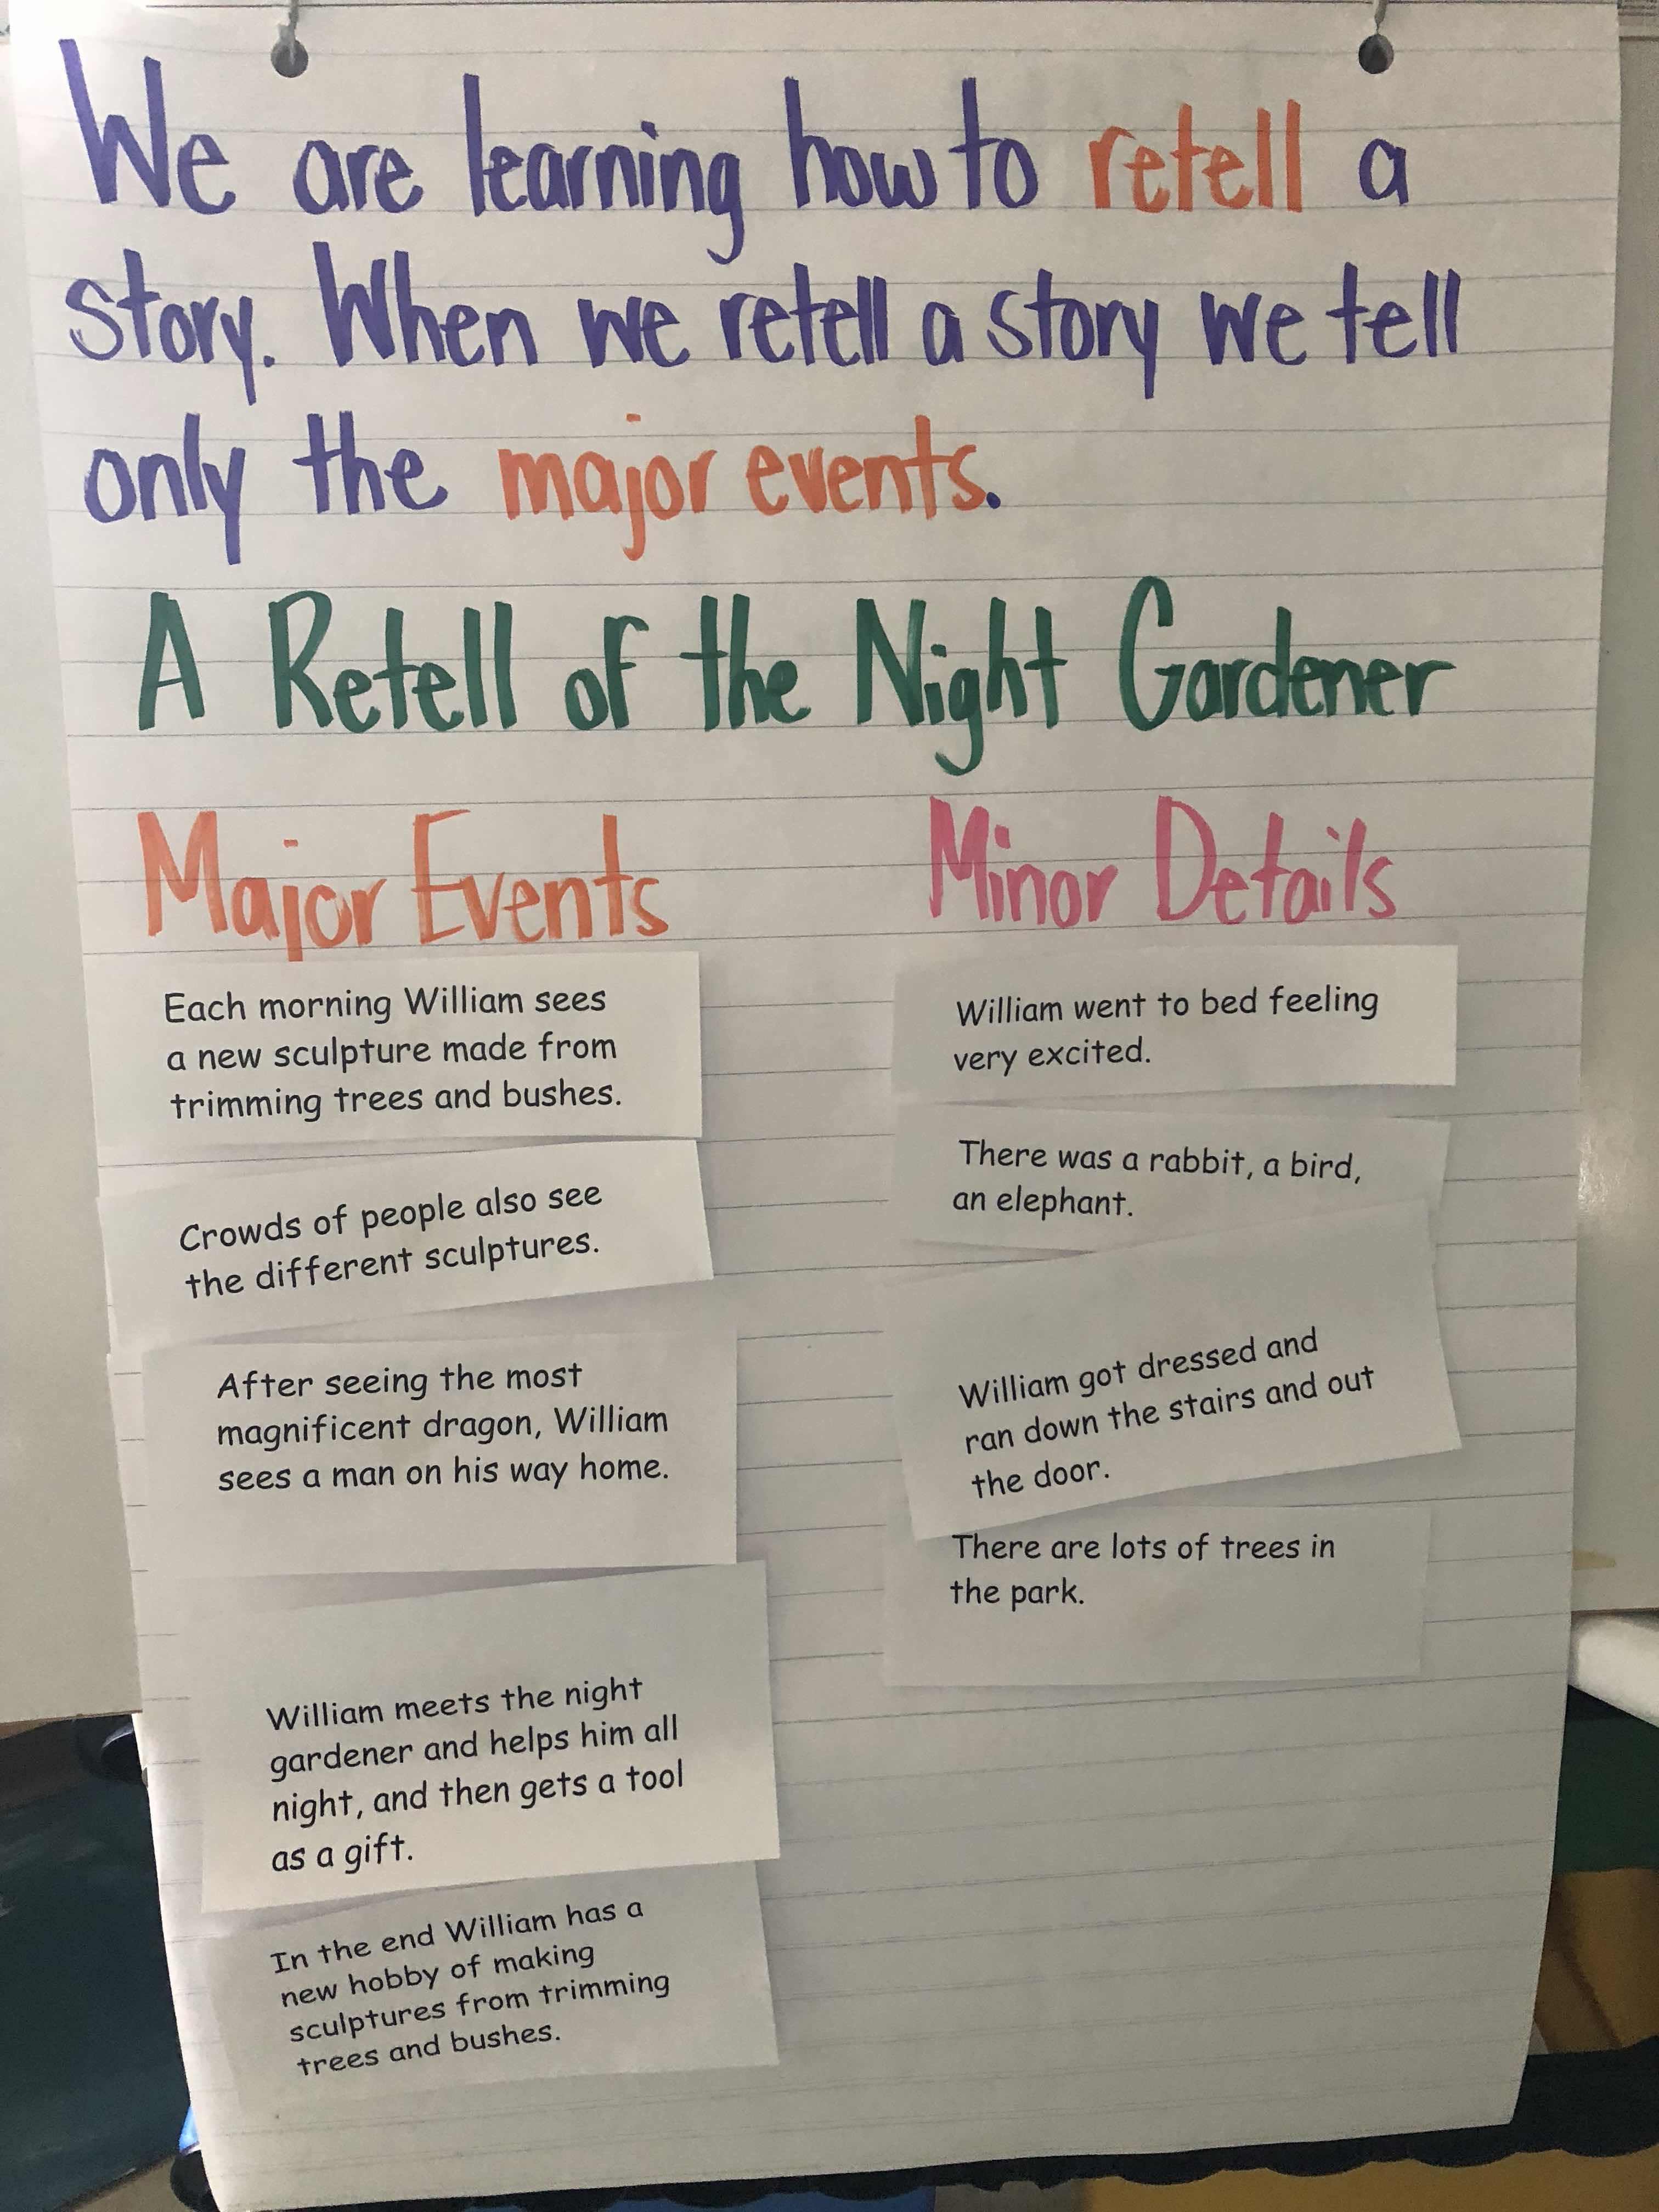 We are learning how to retell a
story. When we retell a story we tell
only the major events.
A Retell of the Night Gardener
Major Events
Each morning William sees
a new sculpture made from
trimming trees and bushes.
Crowds of people also see
the different sculptures.
After seeing the most
magnificent dragon, William
sees a man on his way home.
William meets the night
gardener and helps him all
night, and then gets a tool
as a gift.
In the end William has a
new hobby of making
sculptures from trimming
trees and bushes.
Minor Details
William went to bed feeling
very excited.
There was a rabbit, a bird,
an elephant.
William got dressed and
ran down the stairs and out
the door.
There are lots of trees in
the park.